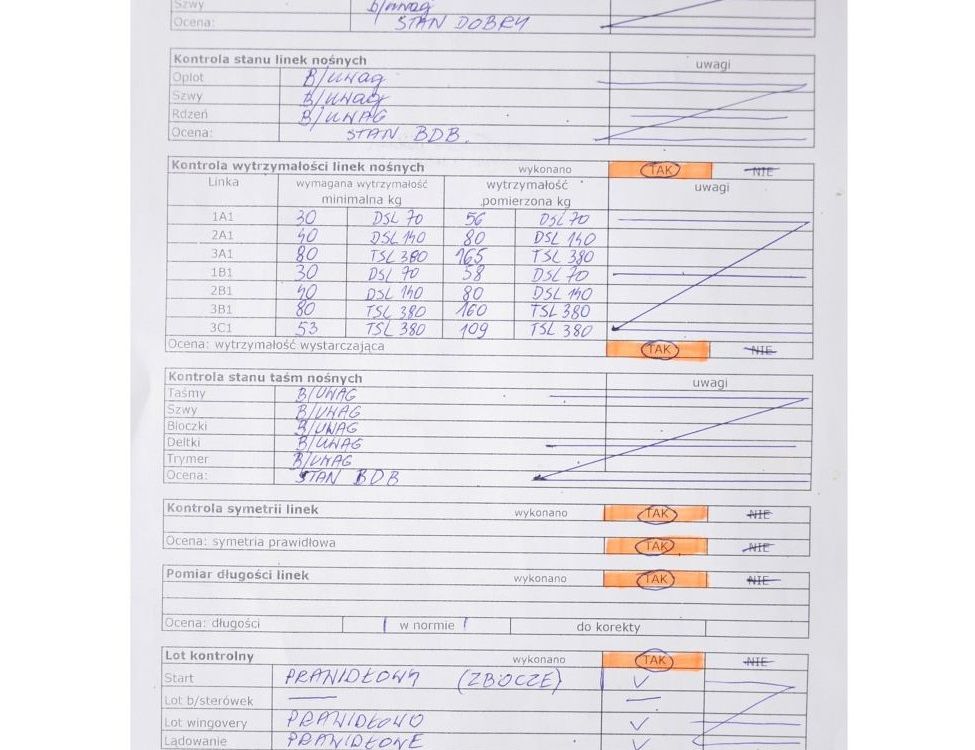 Szwy b/uwag
Ocena: STAN DOBRY
Kontrola stanu linek nośnych uwagi
Oplot B/uwag
Szwy B/uwag
Rdzeń B/UWAG
Ocena: STAN BDB.
Kontrola wytrzymałości linek nośnych wykonano TAK NIE
Linka wymagana wytrzymałość wytrzymałość uwagi
minimalna kg pomierzona kg
1A1 30 DSL 70 56 DSL 70
2A1 40 DSL 140 80 DSL 140
3A1 80 TSL 380 165 TSL 380
1B1 30 DSL 70 58 DSL 70
2B1 40 DSL 140 80 DSL 140
3B1 80 TSL 380 160 TSL 380
3C1 53 TSL 380 109 TSL 380
Ocena: wytrzymałość wystarczająca TAK NIE
Kontrola stanu taśm nośnych uwagi
Taśmy B/UWAG
Szwy B/UWAG
Bloczki B/UWAG
Deltki B/UWAG
Trymer B/UWAG
Ocena: STAN BDB
Kontrola symetrii linek wykonano TAK NIE
Ocena: symetria prawidłowa TAK NIE
Pomiar długości linek wykonano TAK NIE
Ocena: długości w normie do korekty
Lot kontrolny wykonano TAK NIE
Start PRAWIDŁOWY (ZBOCZE)
Lot b/sterówek
Lot wingovery PRAWIDŁOWO
Lądowanie PRAWIDŁOWE